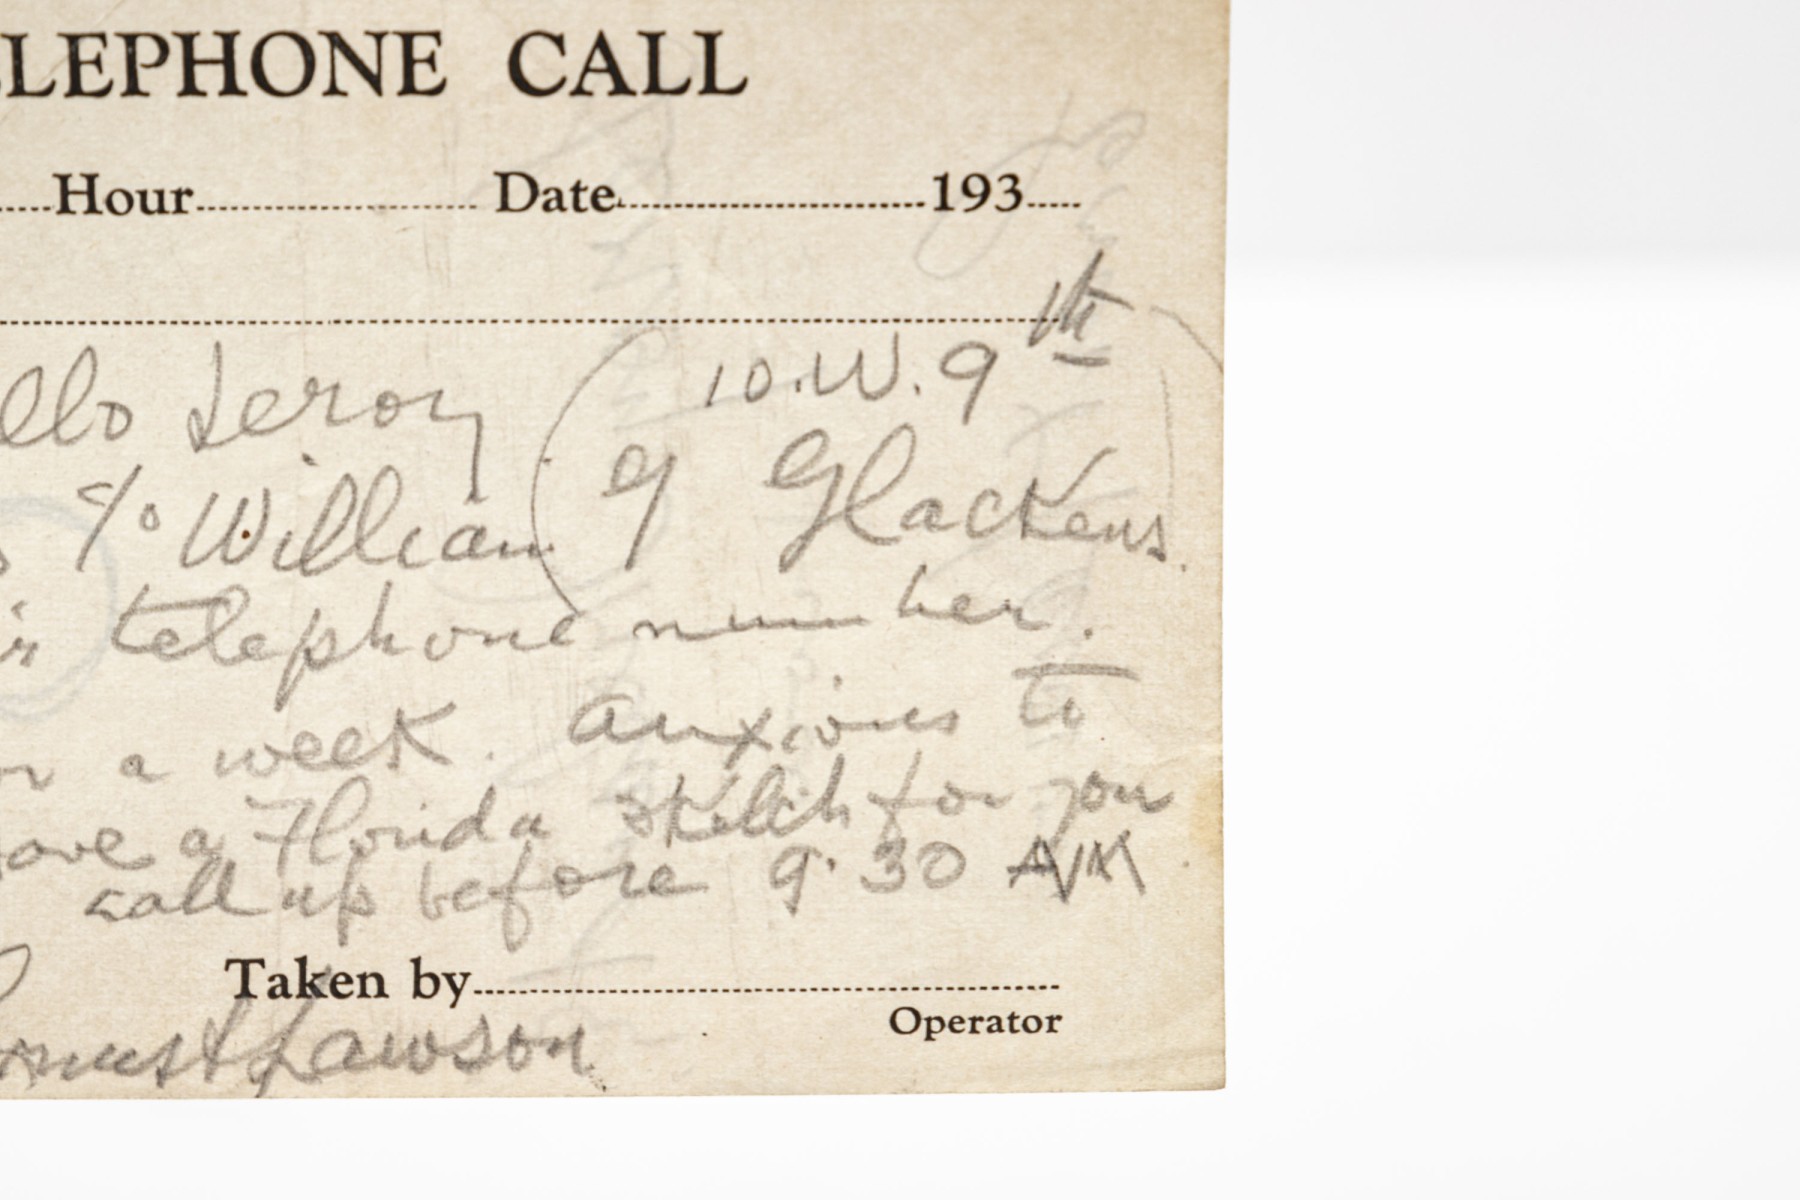 ELEPHONE CALL
Hour Date 193
ello Leroy (10. W. 9th
c/o William G Glackens.
telephone number.
or a week. anxious to
have a Florida sketch for you
call up before 9.30 AM
Taken by
Operator
Ernest Lawson